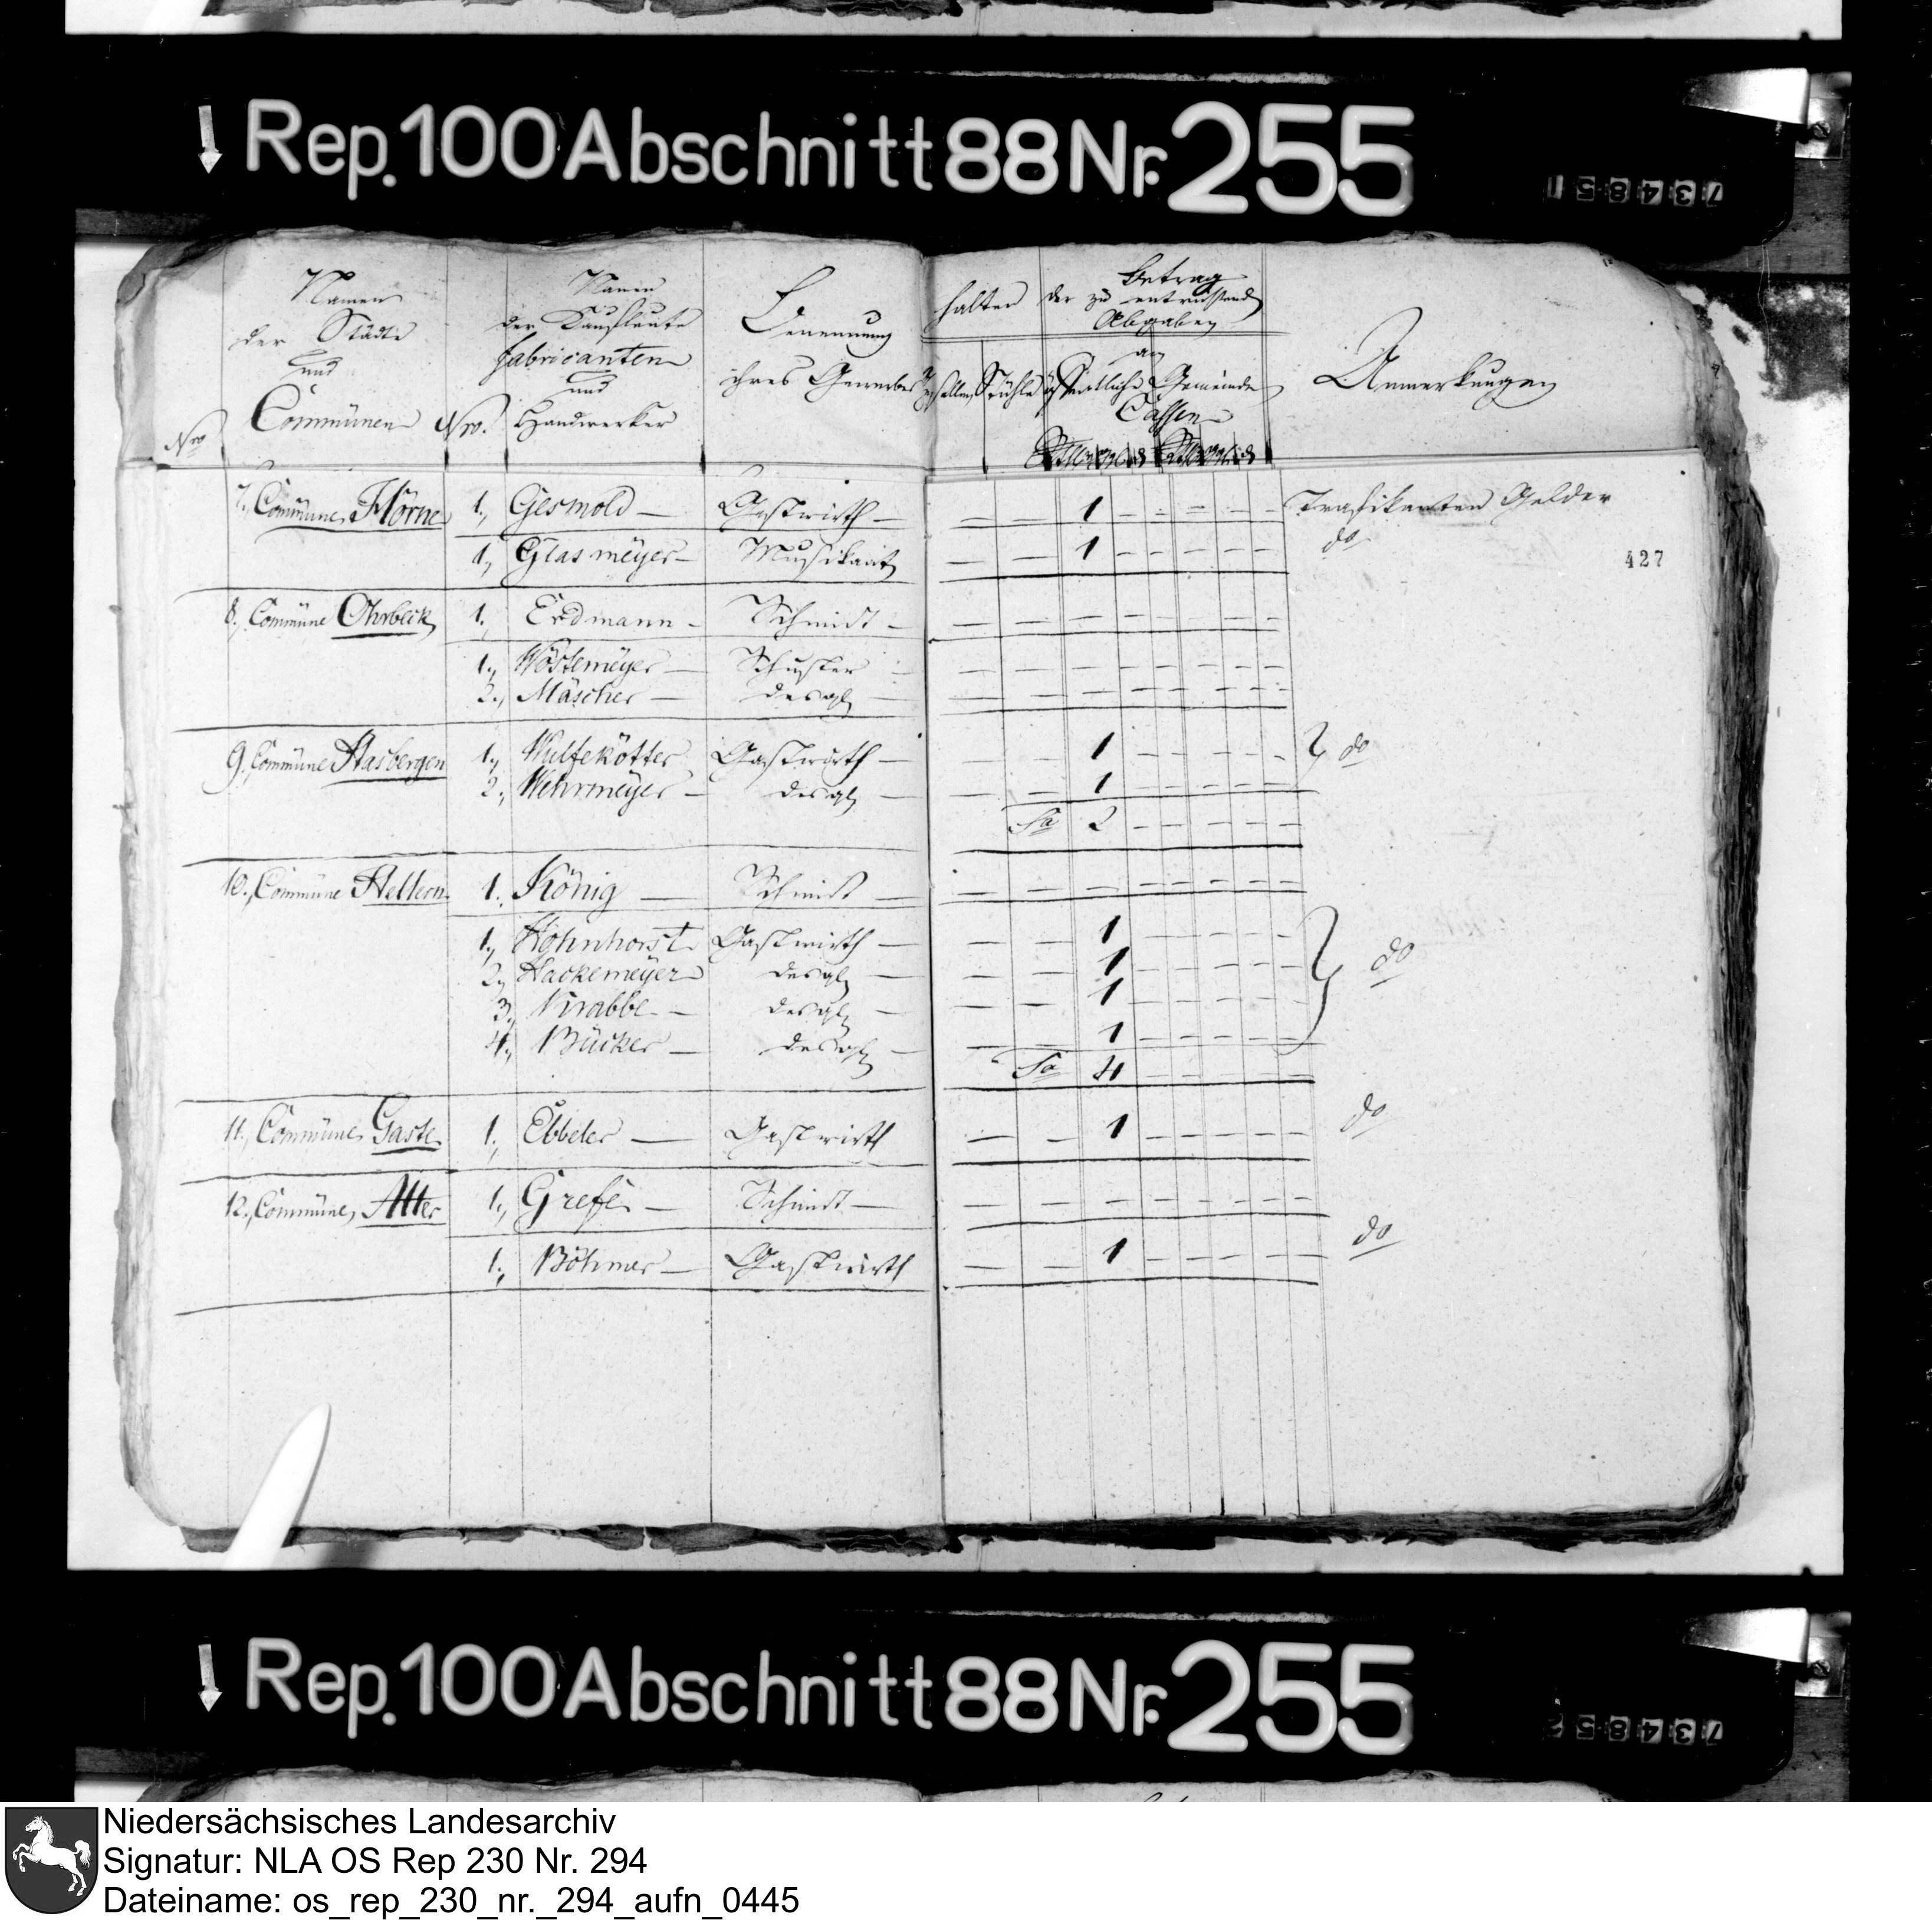 Rep. 100 Abschnitt 88 Nr. 255
734851
Nro
Namen der Städte und Communen
Nro.
Namen der Kaufleute fabricanten und Handwerker
Benennung ihres Gewerbes
halten
Gesellen Stühle
Betrag der zu entrichtend Abgaben
an
öffentliche Gemeinde
Cassen
Anmerkungen
427
7., Commüne Hörne 1., Gesmold — Gastwirth — — — 1 - - - - - Trafikanten Gelder
1., Glasmeyer — Musikant — — 1 - - - - - do
8., Commüne Ohrbeck 1., Erdmann - Schmidt - — — - - - - - -
1., Wöstemeyer — Schuster — — — - - - - - -
2., Mäscher — desgl — — — - - - - - -
9., Commüne Hasbergen 1., Wulfekötter Gastwirth — — — 1 - - - - - do
2., Wehrmeyer — desgl — — — 1 - - - - -
Sa 2 - - - - -
10., Commüne Hellern 1., König — Schmidt — — — - - - - - -
1., Hohnhorst Gastwirth — — — 1 - - - - - do
2., Hackemeyer desgl — — — 1 - - - - -
3., Krabbe — desgl — — — 1 - - - - -
4., Bücker — desgl — — — 1 - - - - -
Sa 4 - - - - -
11., Commüne Gaste 1., Ebbeler — Gastwirth — — 1 - - - - - do
12., Commüne Atter 1., Grefe — Schmidt — — — - - - - - -
1., Böhmer — Gastwirth — — 1 - - - - - do
Rep. 100 Abschnitt 88 Nr. 255
734852
Niedersächsisches Landesarchiv
Signatur: NLA OS Rep 230 Nr. 294
Dateiname: os_rep_230_nr._294_aufn_0445